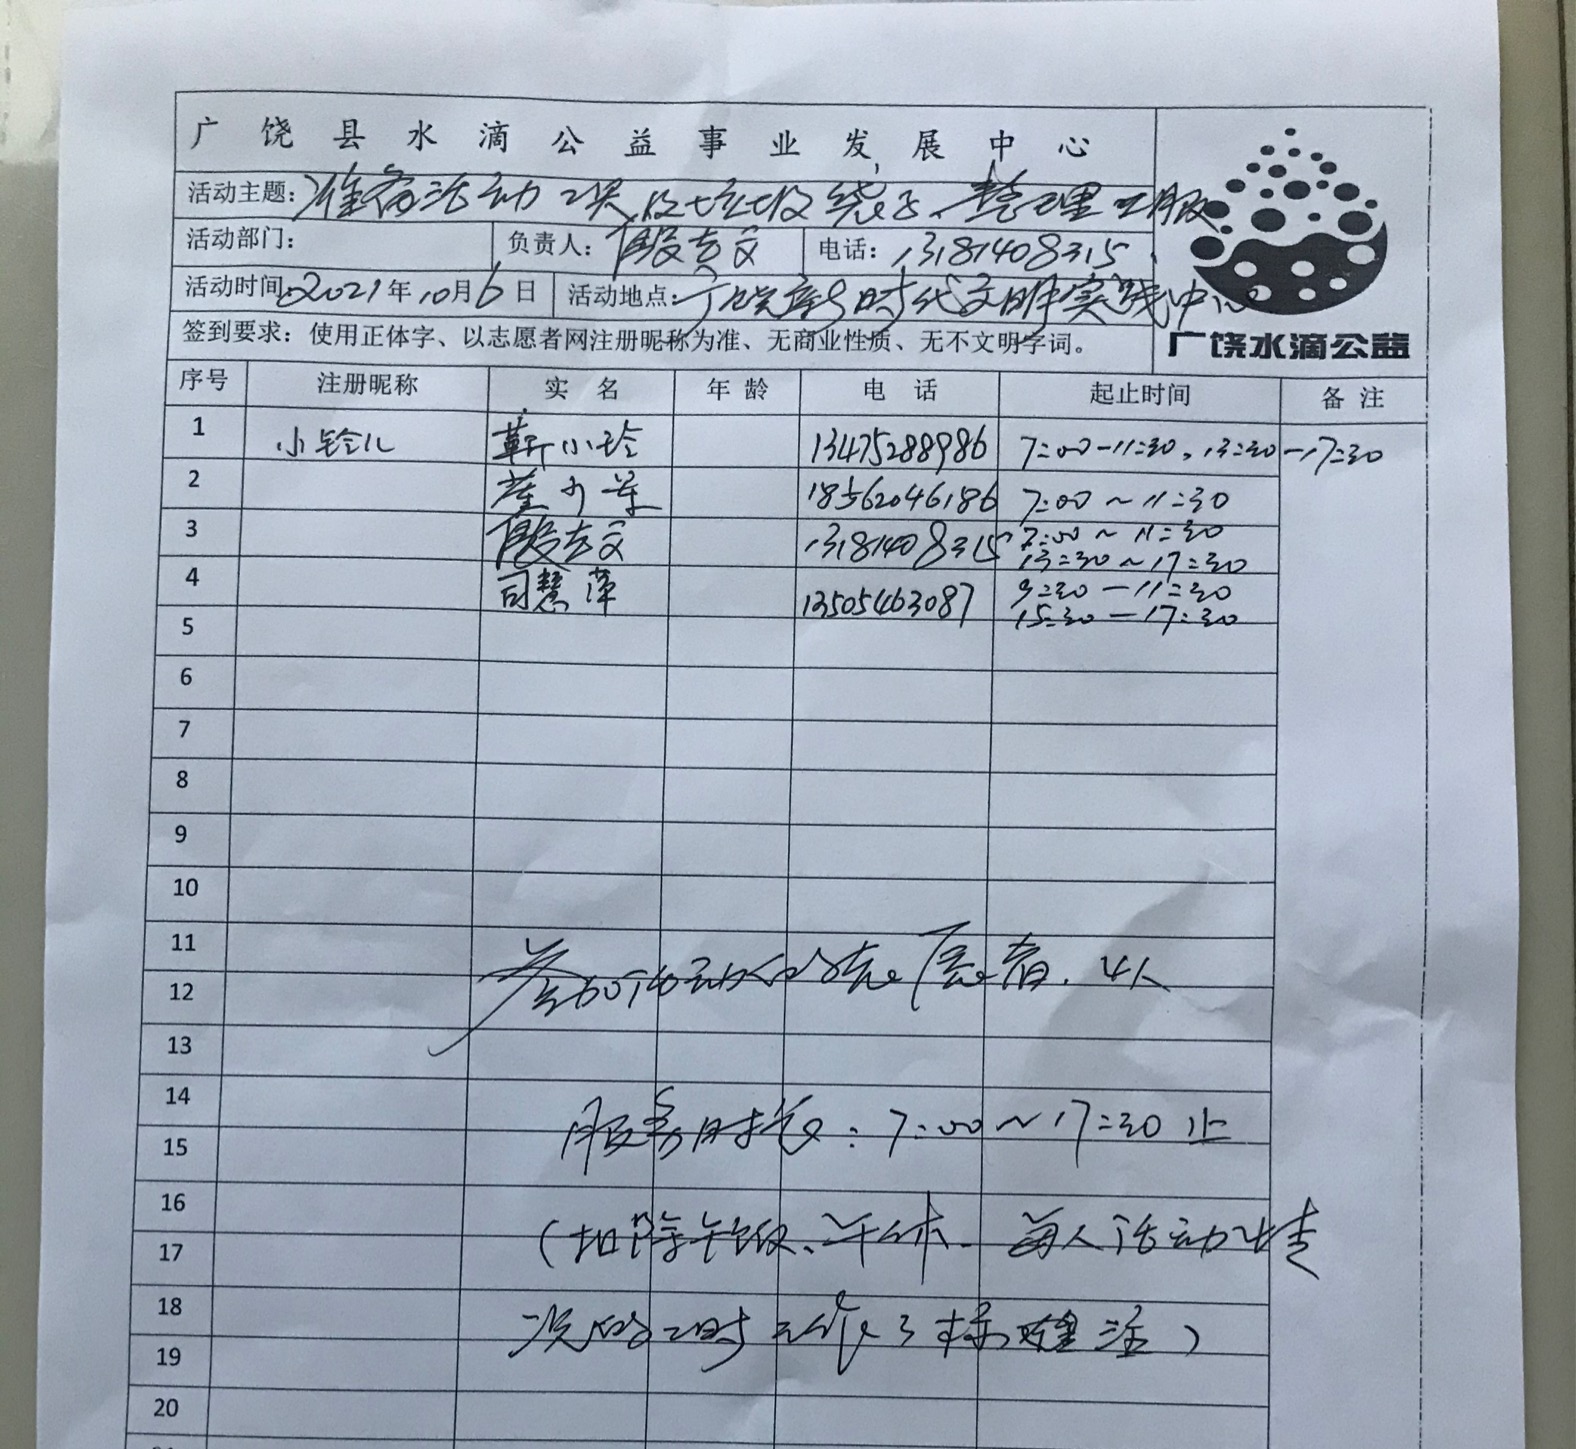 广饶县水滴公益事业发展中心
活动主题：准备活动 及垃圾袋子、整理工服
活动部门： 负责人：殷志文 电话：13181408315
活动时间：2021年10月6日 活动地点：广饶新时代文明实践中心
签到要求：使用正体字、以志愿者网注册昵称为准、无商业性质、无不文明字词。
广饶水滴公益
序号 注册昵称 实名 年龄 电话 起止时间 备注
1 小铃儿 靳小玲 13475288986 7:00-11:30,13:30-17:30
2 18562046186 7:00~11:30
3 殷志文 13181408315 7:00~11:30
13:30~17:30
4 司慧萍 13505463087 9:30-11:30
15:30-17:30
5
6
7
8
9
10
11
参加活动的志愿者.4人
12
13
14
服务时长:7:00~17:30止
15
16
(扣除午饭、午休.每人活动情
17
18
况的工时 了标注)
19
20